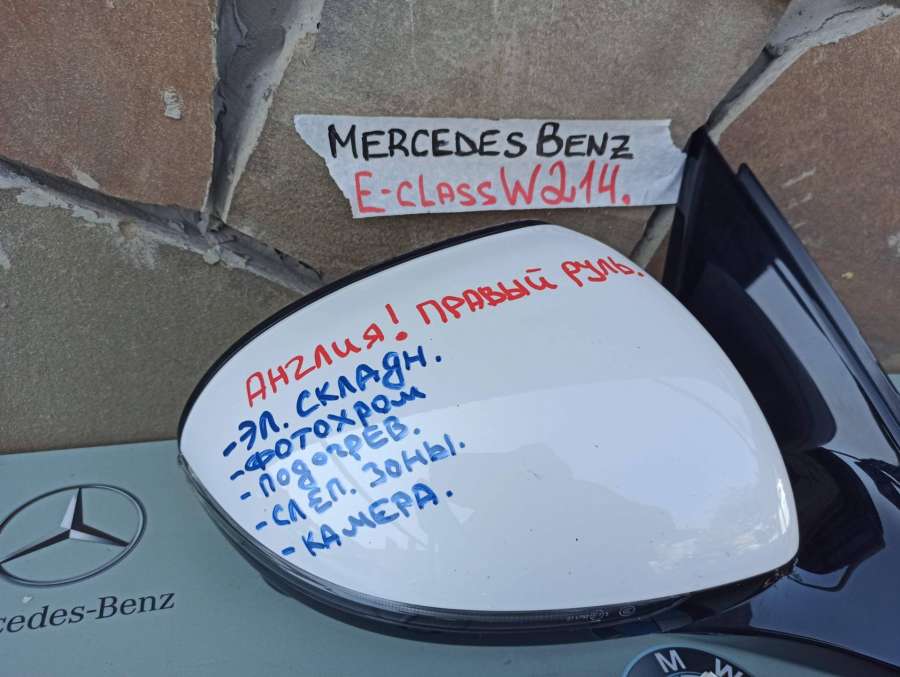 MERCEDES BENZ
E-CLASS W214.
АНГЛИЯ! ПРАВЫЙ РУЛЬ.
-ЭЛ. СКЛАДН.
-ФОТОХРОМ
-ПОДОГРЕВ.
-СЛЕП. ЗОНЫ.
-КАМЕРА.
cedes-Benz
M W